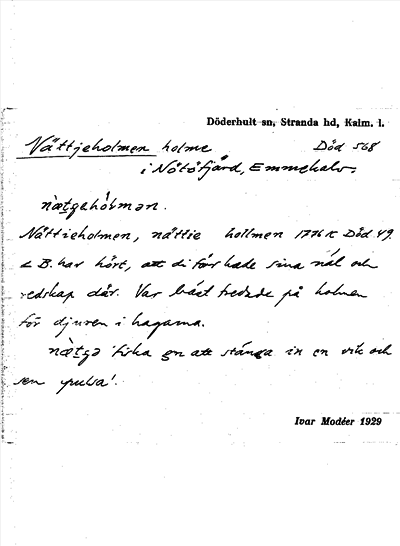 Döderhult sn, Stranda hd, Kalm. l.
Nättjeholmen holme Död 568
i Nötöfjärd, Emmekalv.
Nättieholmen, nättie hollmen 1776 Död 49.
B. har hört, att di förr hade sina nål och
redskap där. Var bäst fredade på holmen
för djuren i hagarna.
fiska gn att stänga in en vik och
sen pulsa'.
Ivar Modéer 1929